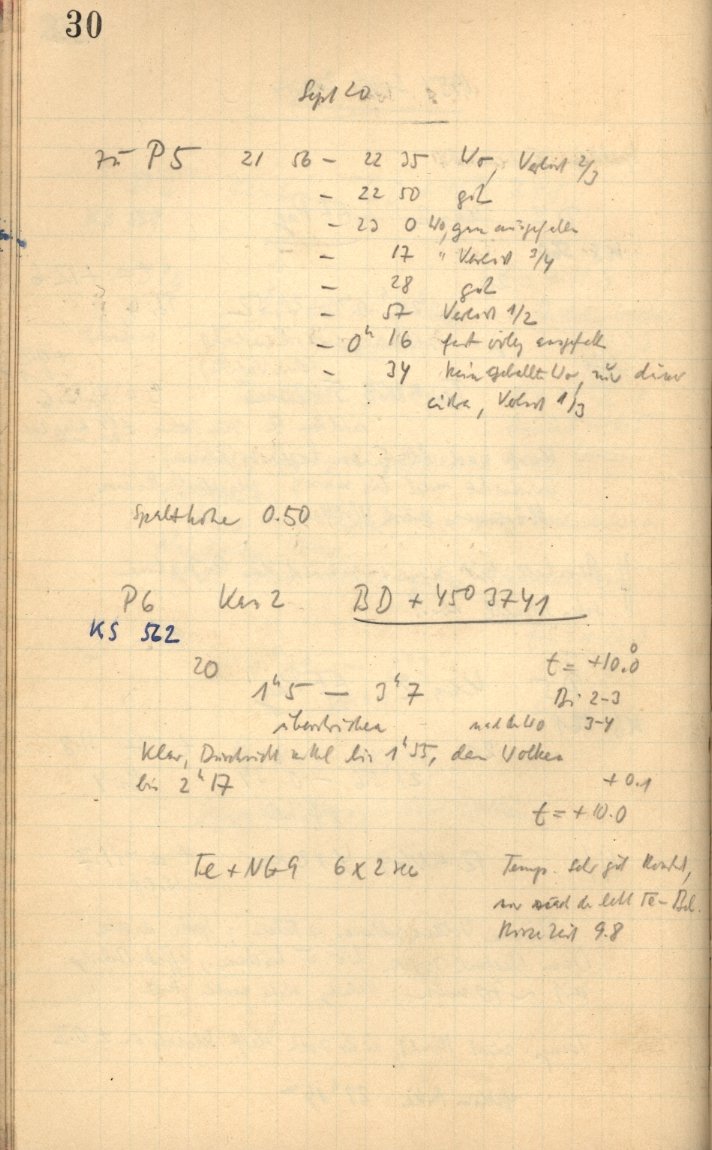 30
Sept 20
zu P5 21 56 - 22 35 Wo, Verlust 2/3
- 22 50 gut
- 23 0 Wo, ganz ausgefallen
- 17 " Verlust 3/4
- 28 gut
- 57 Verlust 1/2
- 0h 16 fast völlig ausgefallen
- 34 kein geballte Wo, nur dünne
cirren, Verlust 1/3
Spalthöhe 0.50
P6 Kas 2 BD + 45° 3741
KS 562
20 t = +10.0
1h 5 - 3h 7 Bi 2-3
überstrichen nach Wo 3-4
Klar, Durchsicht mittel bis 1h 55, dann Wolken
bis 2h 17 +0.1
t = +10.0
Te + NG9 6 x 2 sec Temp. sehr gut konst,
nur nach der letzt Te-Bel.
9.8